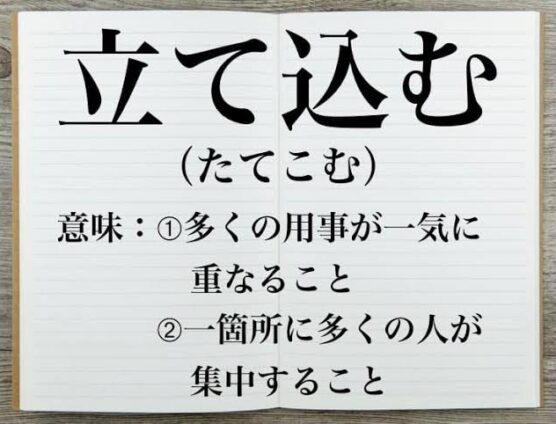 立て込む
(たてこむ)
意味:①多くの用事が一気に
重なること
②一箇所に多くの人が
集中すること